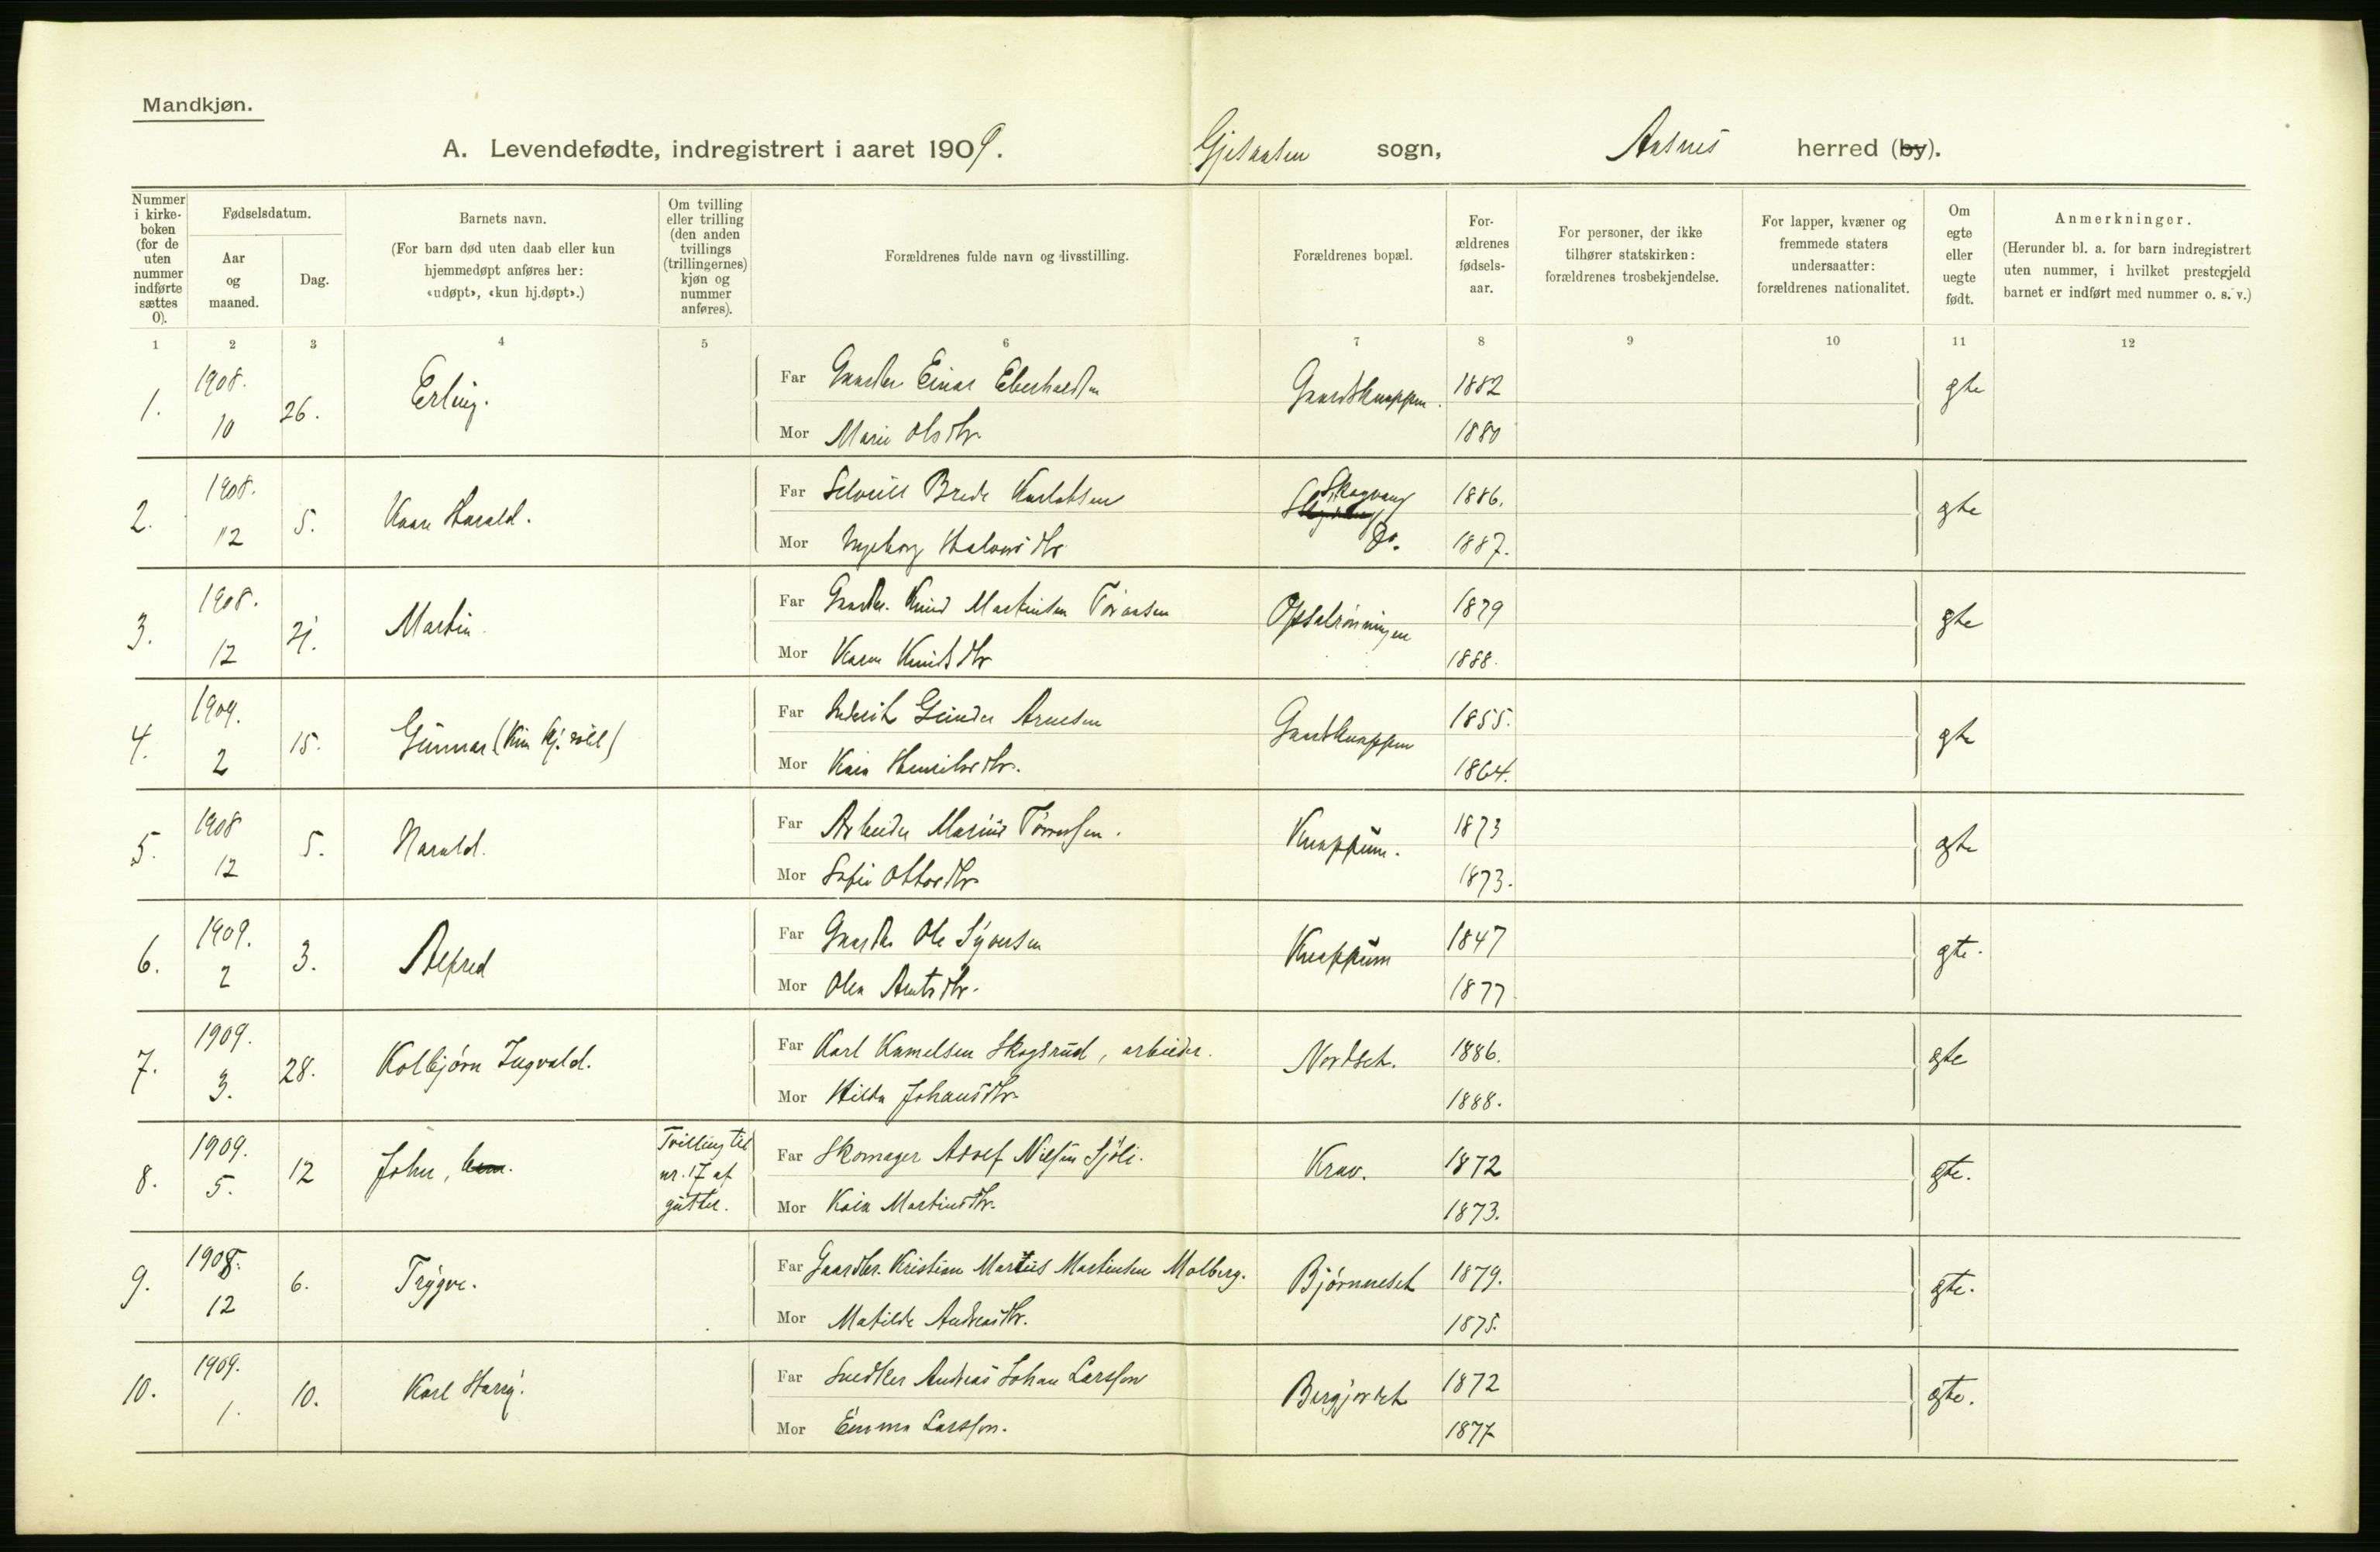 Mandkjøn.
A. Levendefødte, indregistrert i aaret 1909. Gjesaasen sogn, Aasnes herred (by).
Nummer i kirkeboken (for de uten nummer indførte sættes 0).
Fødselsdatum.
Aar og maaned.
Dag.
Barnets navn.
(For barn død uten daab eller kun hjemmedøpt anføres her: «udøpt», «kun hj.døpt».)
Om tvilling eller trilling (den anden tvillings (trillingernes) kjøn og nummer anføres).
Forældrenes fulde navn og livsstilling.
Forældrenes bopæl.
Forældrenes fødselsaar.
For personer, der ikke tilhører statskirken: forældrenes trosbekjendelse.
For lapper, kvæner og fremmede staters undersaatter: forældrenes nationalitet.
Om egte eller uegte født.
Anmerkninger.
(Herunder bl. a. for barn indregistrert uten nummer, i hvilket prestegjeld barnet er indført med nummer o. s. v.)
1 2 3 4 5 6 7 8 9 10 11 12
1. 1908. 10 26. Erling.
Far Gaardbr. Einar Eberhardsen Gaardsknappen. 1882 gte
Mor Marie Olsdtr. 1880
2. 1908. 12 5. Kaare Harald.
Far Brede Karlotsen Skogvang 1886. gte
Mor Ingeborg Halvorsdtr. Do. 1887.
3. 1908. 12 21. Martin.
Far Gaardbr. Knud Martinsen Opsalrönningen 1879 gte
Mor Karen Knudsdtr 1888.
4. 1909. 2 15. Gunnar (Kun hj.
Far Inderst Gunder Arnesen Gaardsknappen 1855. gte
Mor Kaia Henriksdtr. 1864.
5. 1908 12 5. Harald.
Far Arbeider Marius Knappum. 1873 gte
Mor Sofie Ottosdtr 1873.
6. 1909. 2 3. Alfred
Far Gaardbr Ole Syversen Knappum 1847 gte.
Mor Olea Arntsdtr. 1877
7. 1909. 3. 28. Kolbjørn Ingvald.
Far Karl Kamelsen Skogsrud, arbeider. Nordset. 1886. gte
Mor Hilda Johansdtr. 1888.
8. 1909. 5. 12 John,
Tvilling til nr. 17 af gutter.
Far Skomager Adolf Nielsen Sjøli. Krav. 1872 gte.
Mor Kaia Martinsdtr. 1873.
9. 1908. 12 6. Trygve.
Far Gaardbr. Kristian Martius Martinsen Molberg. Bjørnneset 1879. gte.
Mor Matilde Andreasdtr. 1875.
10. 1909. 1. 10. Karl Harry.
Far Snedker Andreas Johan Larsson Bergjordet 1872 gte.
Mor Emma Larsson. 1877